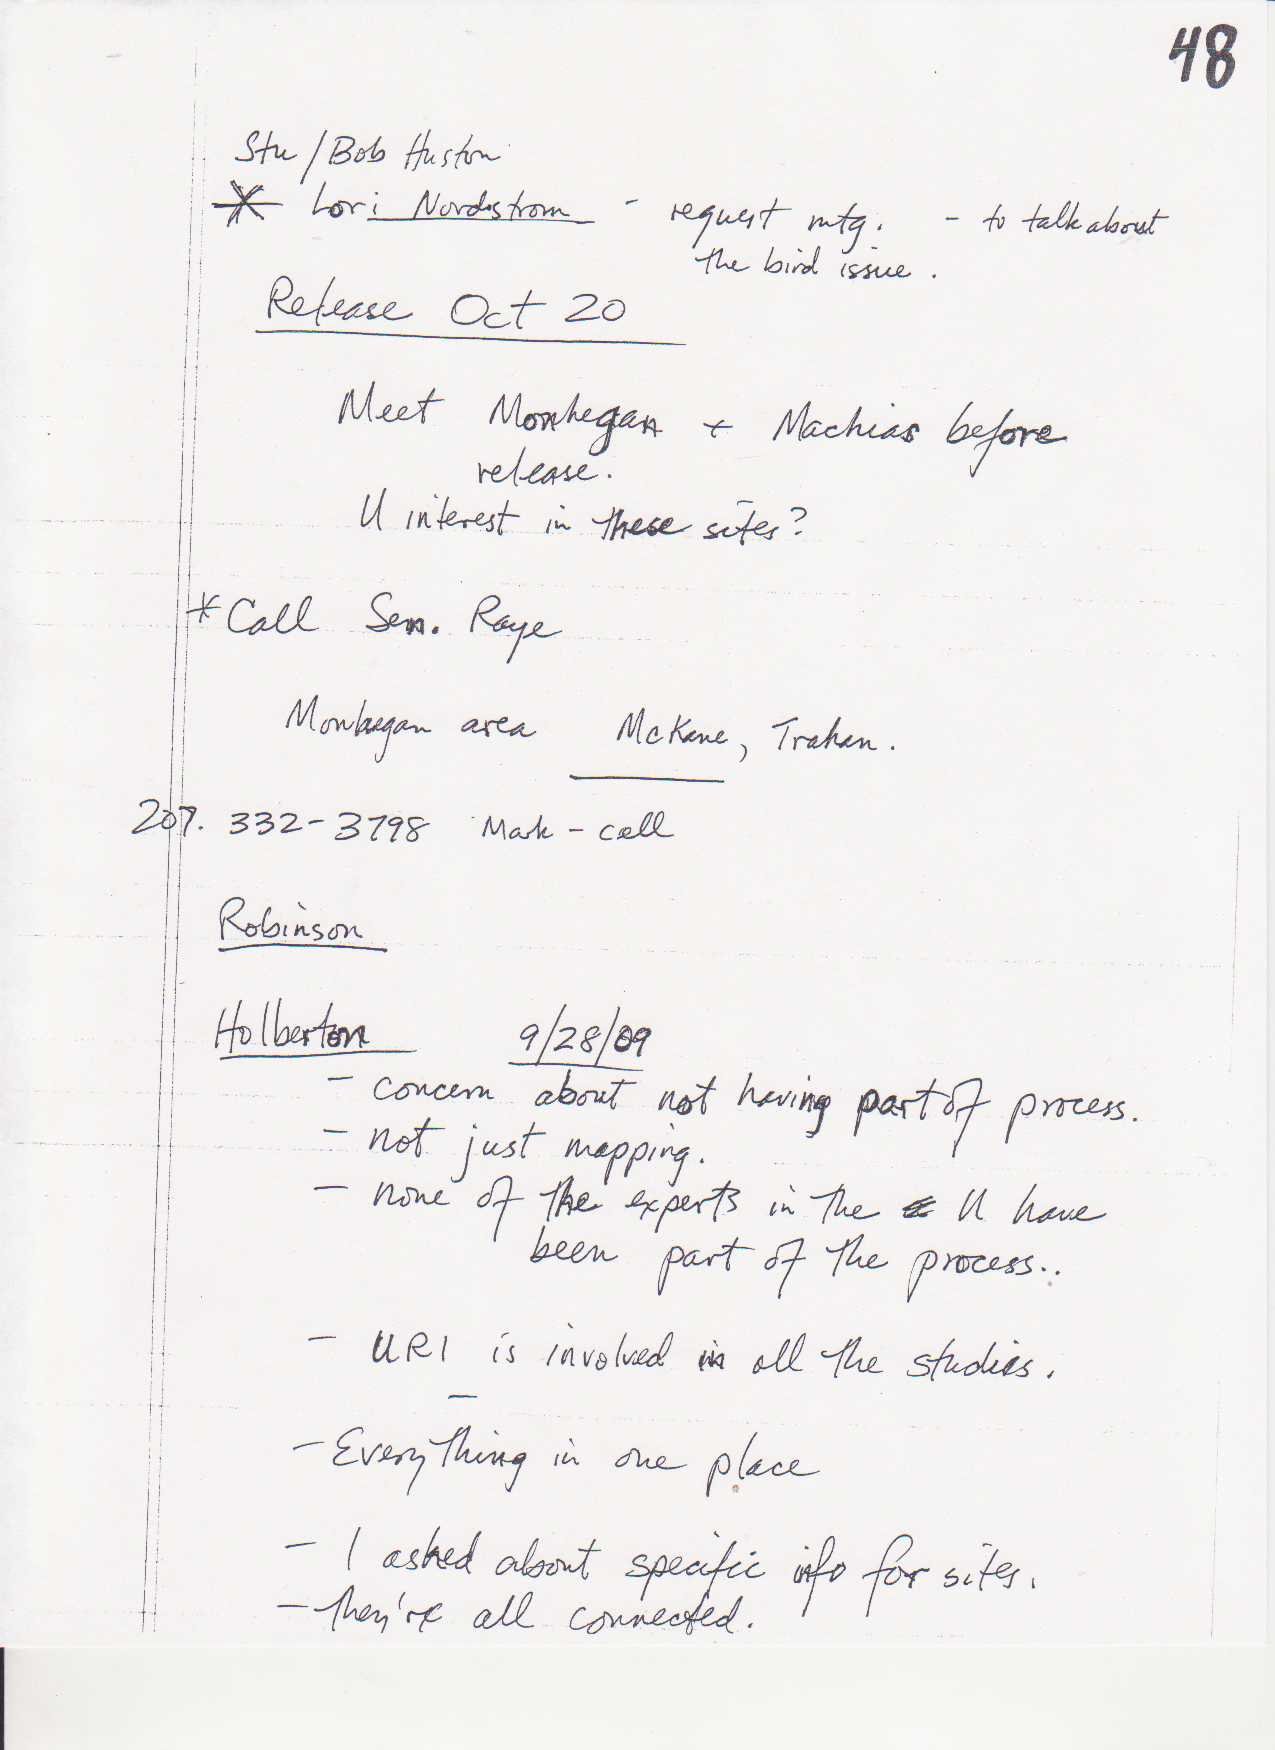 48
Stu/Bob Huston
* Lori Nordstrom - request mtg. - to talk about
the bird issue.
Release Oct 20
Meet Monhegan + Machias before
release.
U interest in these sites?
* Call Sen. Raye
Monhegan area McKane, Trahan.
207. 332-3798 Mark - call
Robinson
Holberton 9/28/09
- concern about not having part of process.
- not just mapping.
- none of the experts in the U have
been part of the process..
- URI is involved in all the studies.
-
- Everything in one place
- I asked about specific info for sites.
- they're all connected.